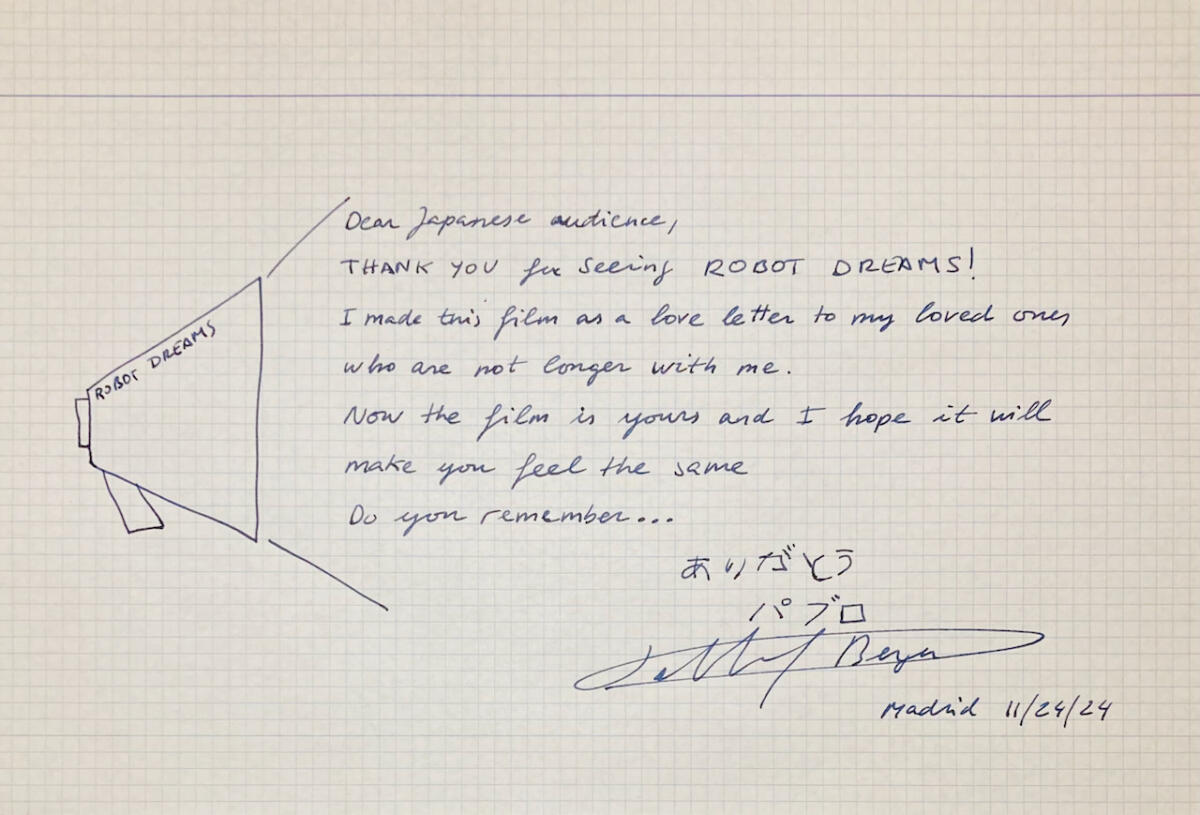 ROBOT DREAMS
Dear Japanese audience,
THANK YOU for seeing ROBOT DREAMS!
I made this film as a love letter to my loved ones
who are not longer with me.
Now the film is yours and I hope it will
make you feel the same
Do you remember...
ありがとう
パブロ
Berger
Madrid 11/24/24